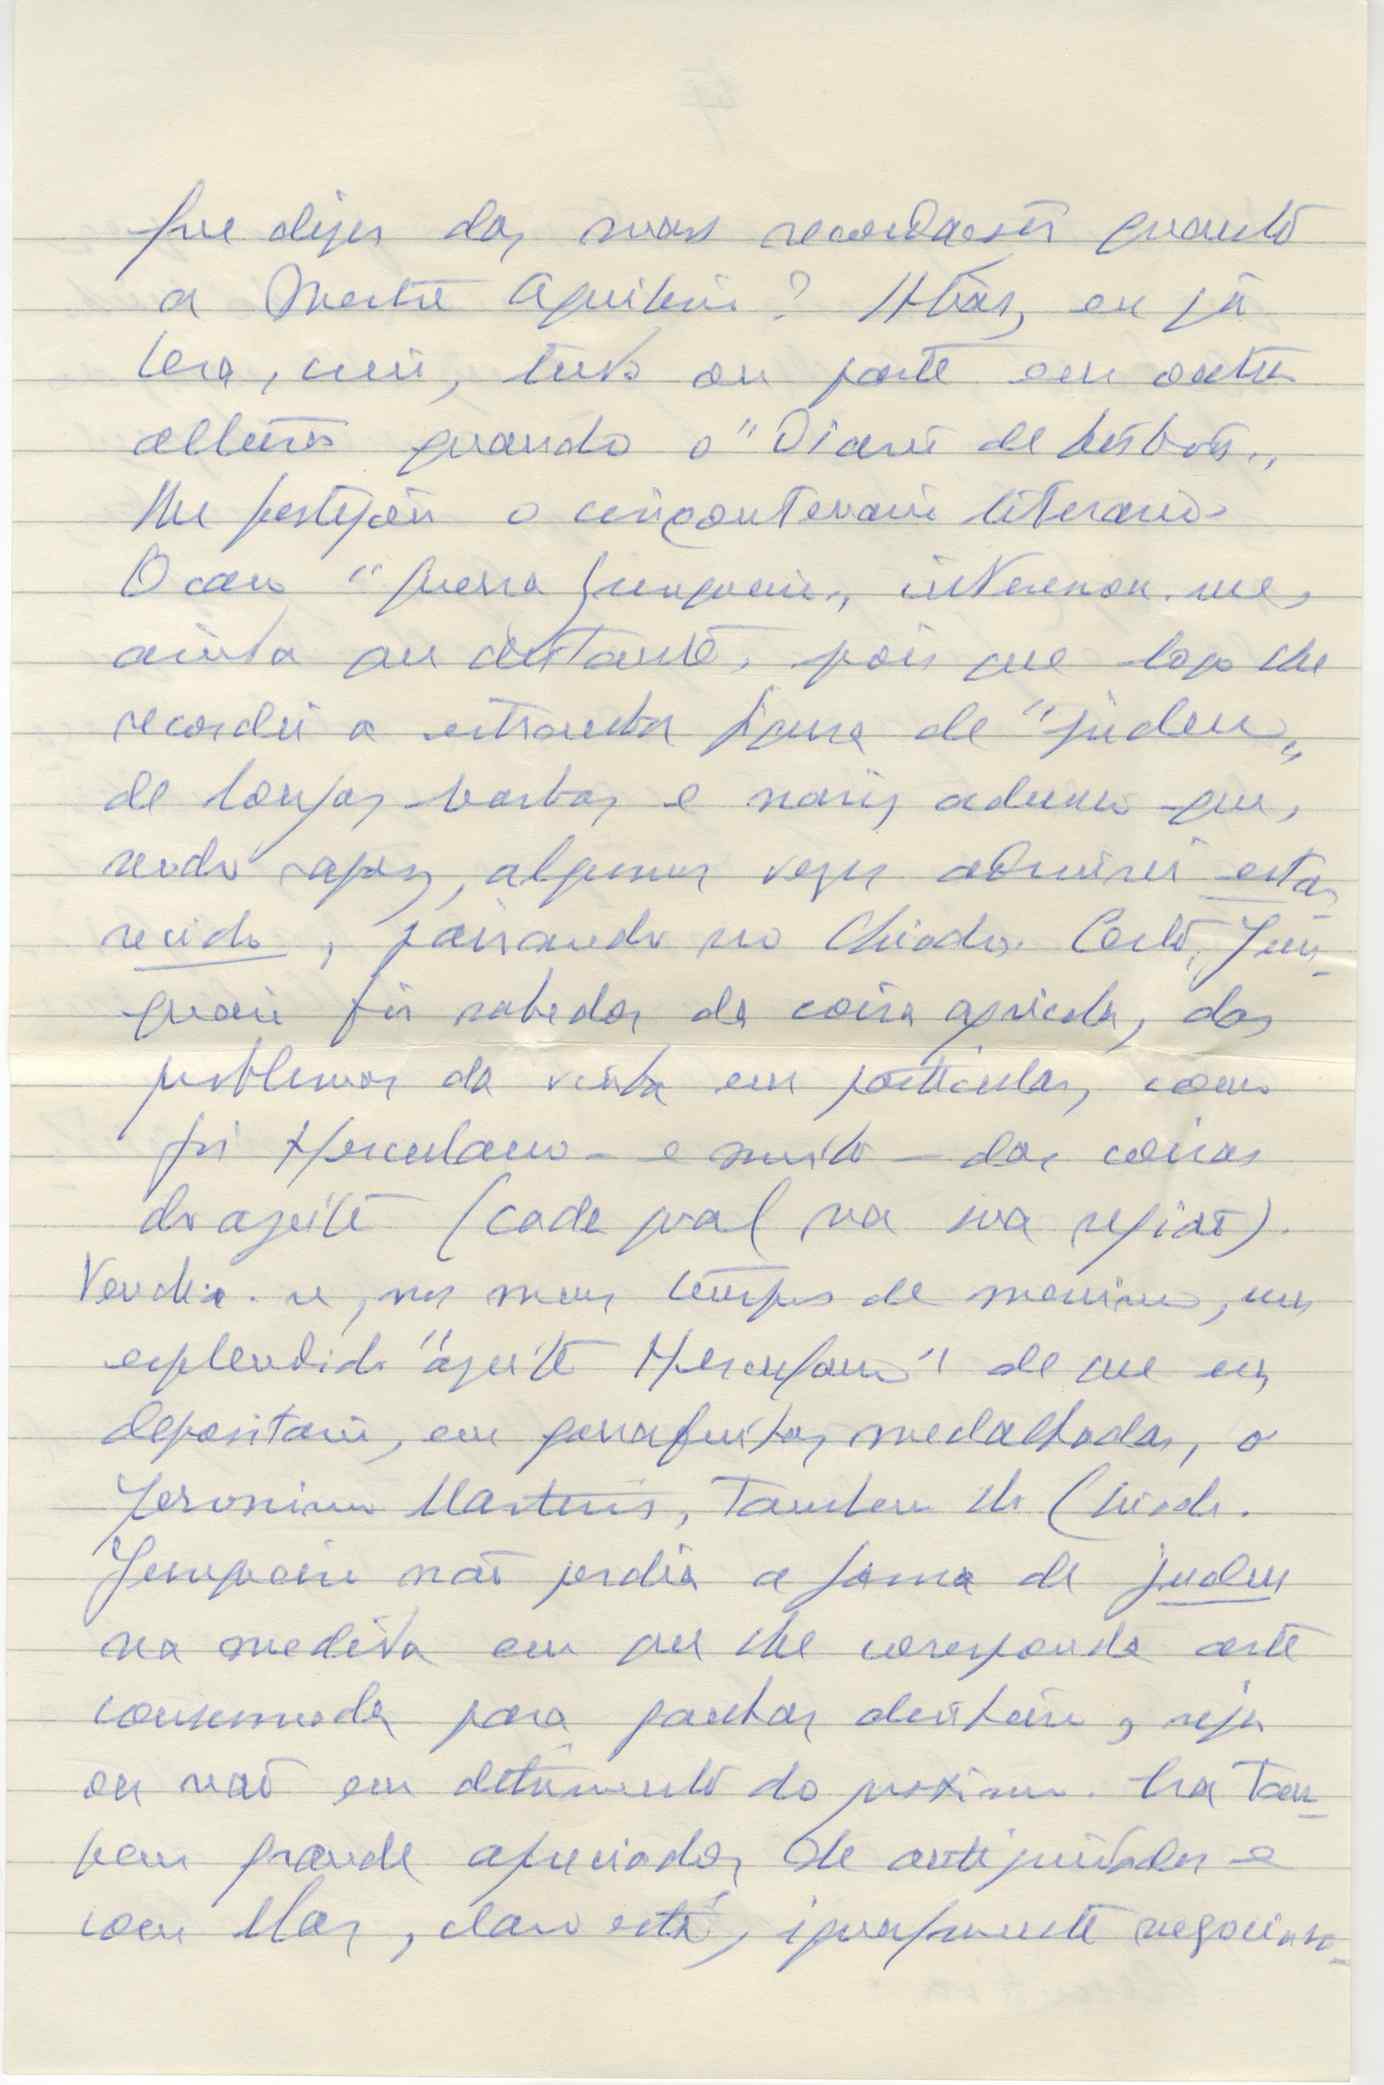 Que dizer das suas recordações quanto
a Mestre Aquilino? Aliás, eu já
lera, creio, tudo ou parte em outra
altura quando o "Diario de Lisboa"
lhe festejou o cinquentenario literario.
O caso "Guerra Junqueiro" interessou-me,
ainda que distante, pois que logo lhe
recordei a estranha figura de "judeu"
de longas barbas e nariz adunco que,
sendo rapaz, algumas vezes admirei esta-
recido, pairando no Chiado. Certo, Jun-
queiro foi sabedor da coisa agricola, dos
problemas da vinha em particular, como
foi Herculano - e muito - das coisas
do azeite (cada qual na sua região).
Vendia-se, nos meus tempos de menino, um
esplendido "azeite Herculano" de que era
depositario, em garrafinhas medalhadas, o
Jeronimo Martins, tambem do Chiado.
Junqueiro não perdia a fama de judeu
na medida em que lhe corresponda arte
consumada para ganhar dinheiro, seja
ou não em detrimento do proximo. Era tam-
bem grande apreciador de antiguidades e
com elas, claro está, igualmente negocian-